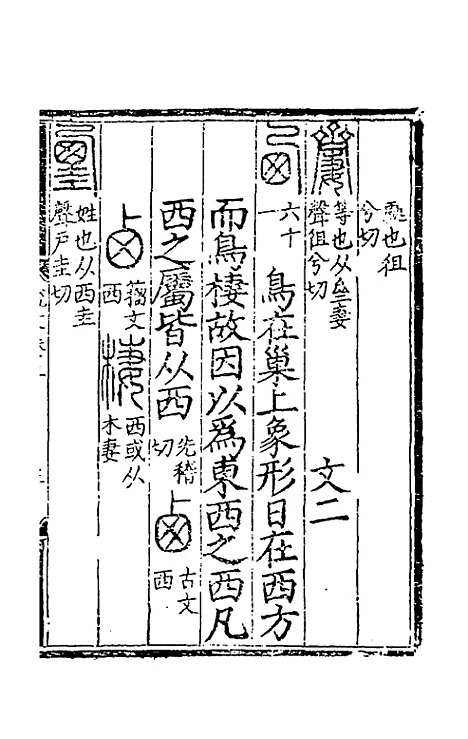 也徂
兮切
等也从亝妻
聲徂兮切
文二
西
六十
一
鳥在巢上象形日在西方
而鳥棲故因以爲東西之西凡
西之屬皆从西
先稽
切
古文
西
籀文
西
棲
西或从
木妻
姓也从西圭
聲戶圭切